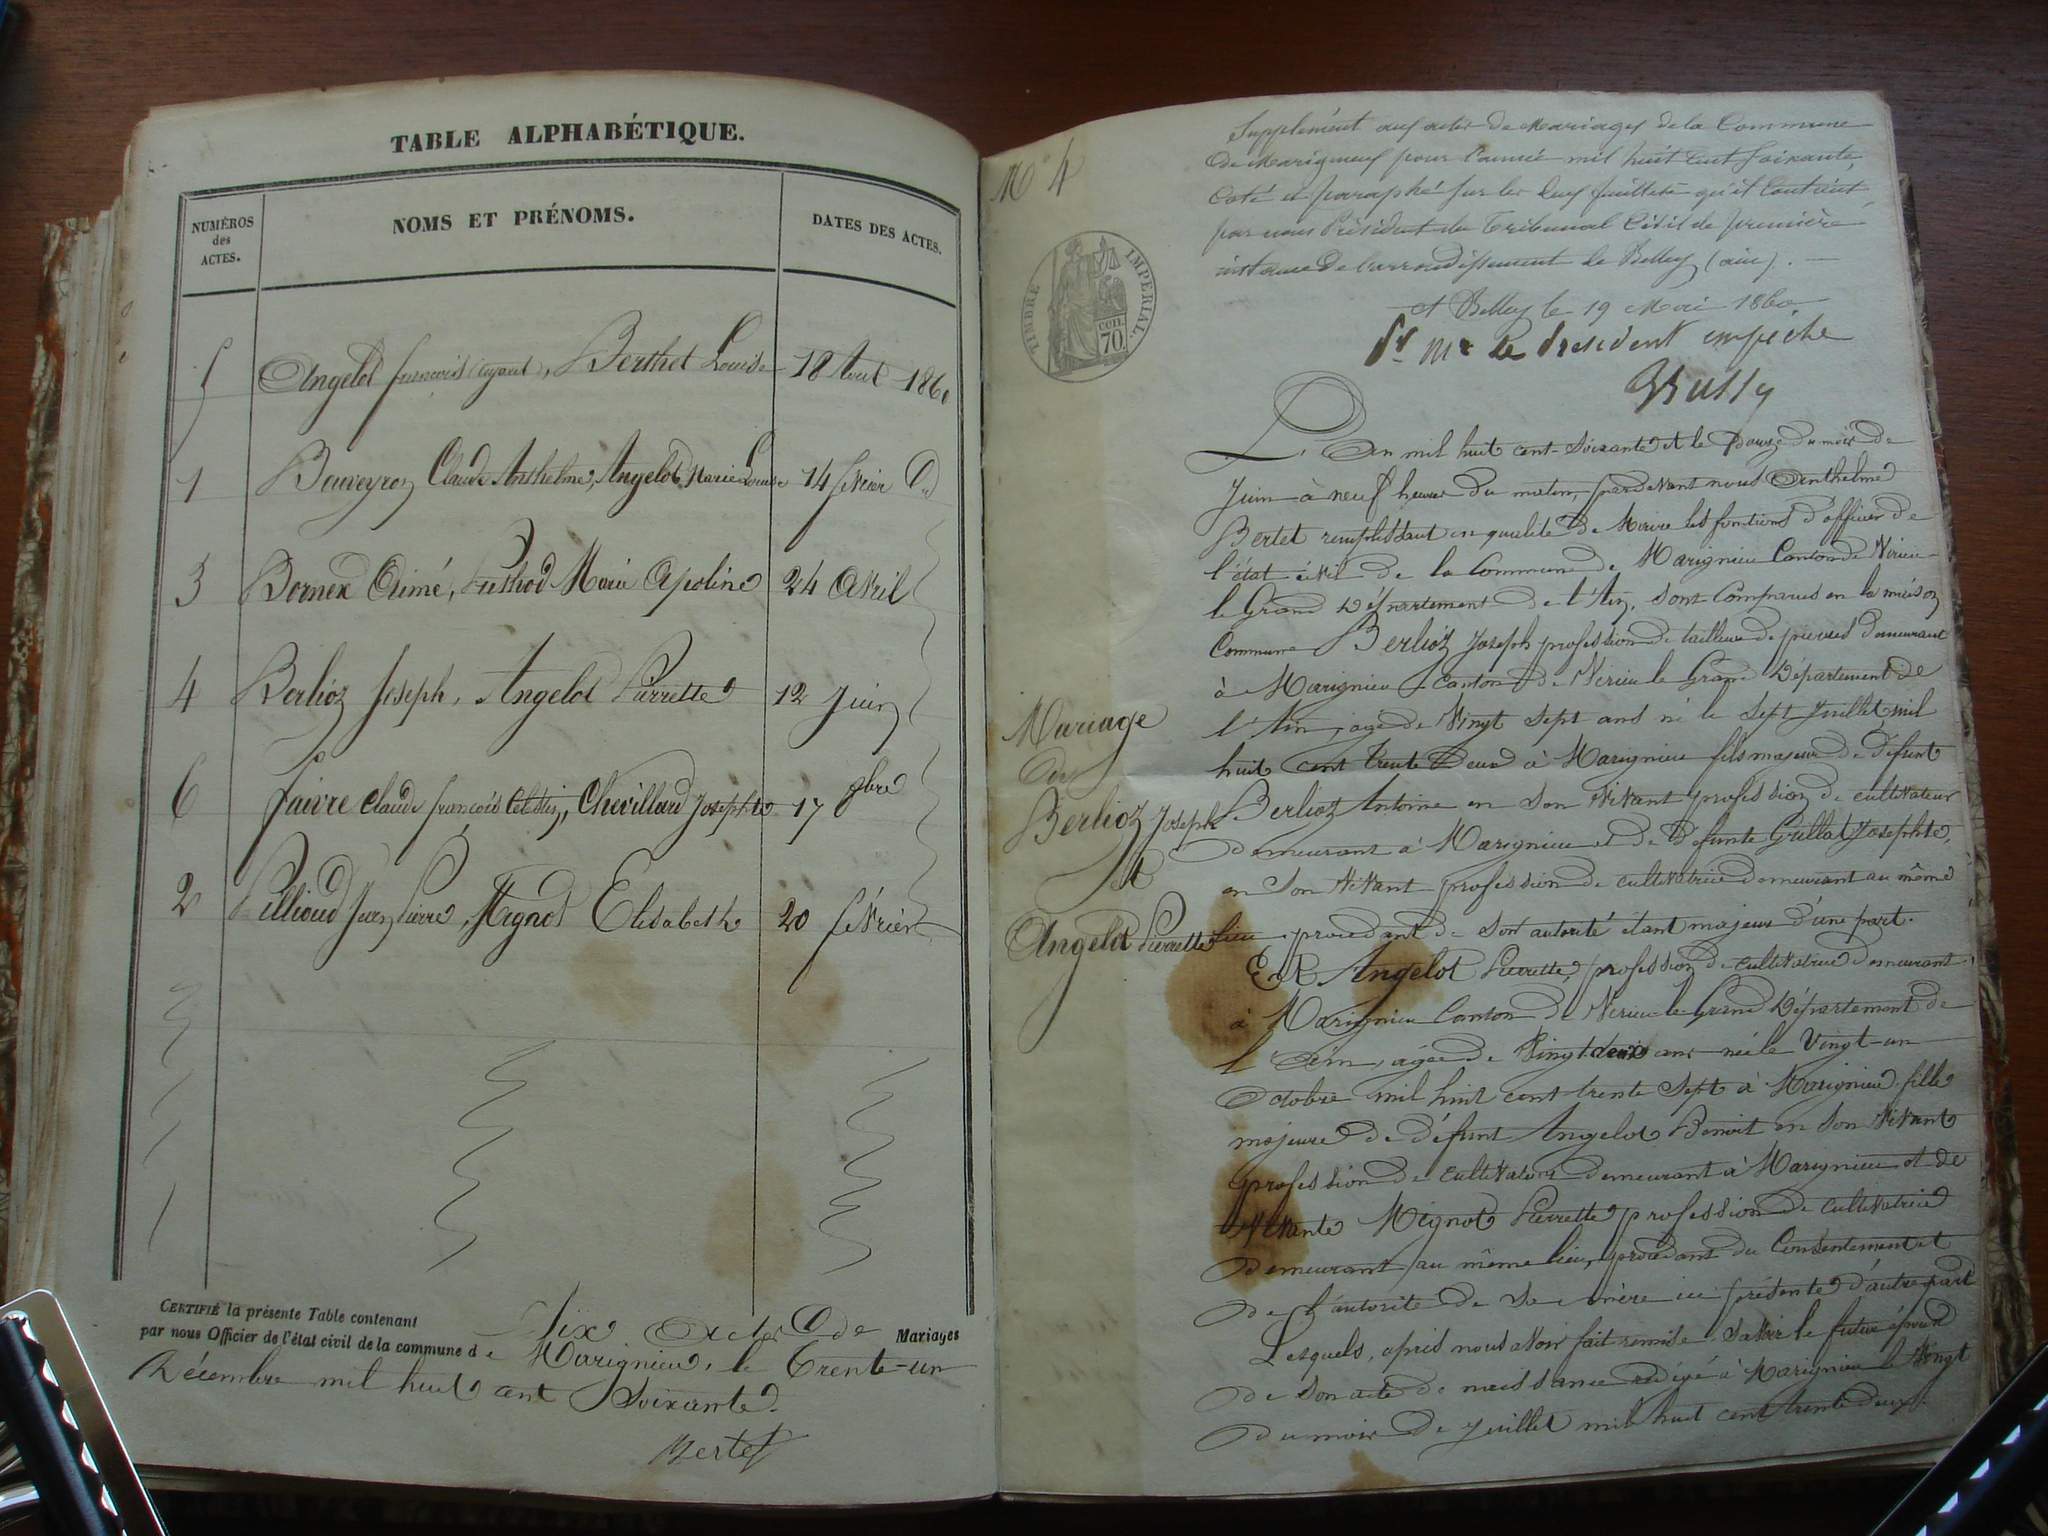 TABLE ALPHABÉTIQUE.
NUMÉROS
des
ACTES.
NOMS ET PRÉNOMS.
DATES DES ACTES.
5 Angelot francois, Berthet Louise 18 Aout 1860
1 Bouveyron Claude Anthelme, Angelot Marie Louise 14 fevrier
3 Bornex Aimé, Marie Apoline 24 Avril
4 Berlioz Joseph, Angelot Pierrette 12 Juin
6 faivre Claude francois Celestin, Chevillard Josephte 17 9bre
2 Pillioud Jean Pierre, Mignot Elisabeth 20 février
CERTIFIÉ la présente Table contenant Six Actes de Mariages
par nous Officier de l'état civil de la commune de Marignieu, le Trente-un
Décembre mil huit cent Soixante.
Bertet
N° 4
TIMBRE IMPÉRIAL.
CON.
70.
Supplément aux actes de Mariages de la Commune
de Marigneux pour l'année mil huit cent soixante,
Coté et paraphé sur les deux feuillets qu'il contient
par nous Président du Tribunal Civil de première
instance de l'arrondissement de Belley (ain). —
A Belley le 19 Mai 1860
Pr Mr le Président empêché
L'An mil huit cent-Soixante et le Douze du mois de
Juin à neuf heures du matin, pardevant nous Anthelme
Bertet remplissant en qualité de Maire les fontions d'officier de
l'état civil de la Commune de Marignieu Canton de Virieu-
le Grand Département de l'Ain, sont Comparus en la maison
Commune Berlioz Joseph profession de tailleur de pierres demeurant
à Marignieu Canton de Virieu le Grand Département de
l'Ain, agé de Vingt Sept ans né le Sept Juillet mil
huit cent trente Deux à Marignieu fils majeur de défunt
Berlioz Antoine en son Vivant profession de cultivateur
demeurant à Marignieu et de défunte Grillat Josephte,
en Son Vivant profession de cultivatrice demeurant au même
lieu procédant de Son autorité étant majeur d'une part.
Mariage
de
Berlioz Joseph
et
Angelot Pierrette
Et Angelot Pierrette, profession de cultivatrice demeurant
à Marignieu Canton de Virieu-le Grand Département de
l'Ain, agée de Vingt deux ans née le Vingt-un
Octobre mil huit cent trente Sept à Marignieu fille
majeure de défunt Angelot Benoit en Son Vivant
profession de cultivateur demeurant à Marignieu et de
Vivante Mignot Pierrette profession de cultivatrice
demeurant au même lieu, procédant du Consentement et
de l'autorité de Sa mère ici présente d'autre part
Lesquels, après nous avoir fait remise Savoir le futur époux
de Son acte de naissance rédigé à Marignieu le Vingt
du mois de Juillet mil huit cent trente deux.